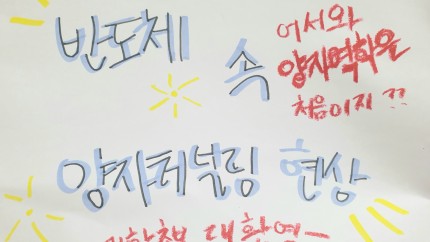 반도체 속
어서와
양자역학은
처음이지??
양자터널링 현상